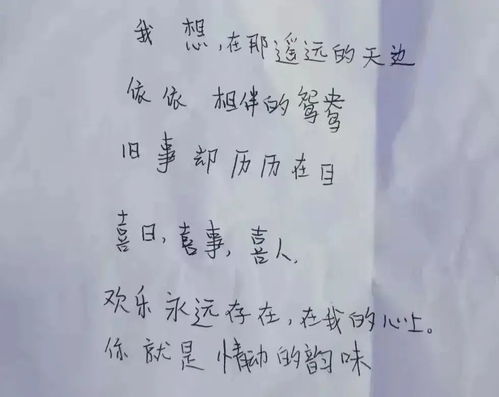 我想,在那遥远的天边
依依相伴的鸳鸯
旧事却历历在目
喜日,喜事,喜人.
欢乐永远存在,在我的心上。
你就是情动的韵味